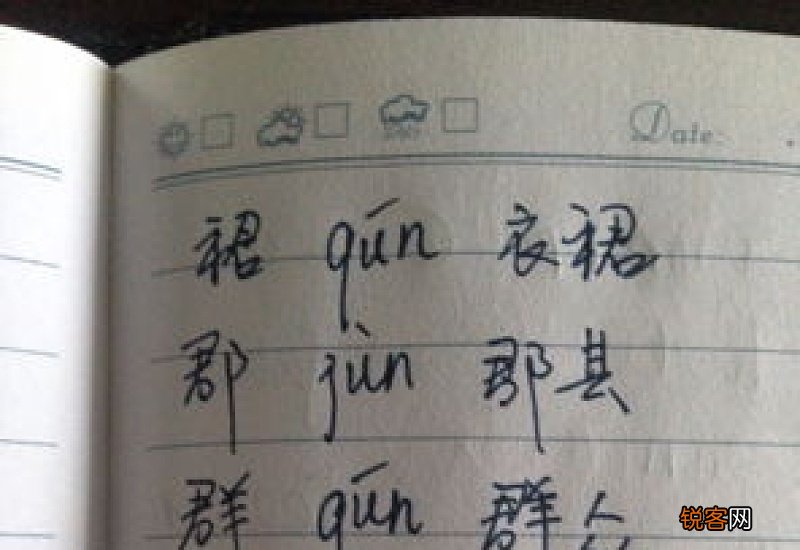 Date.
裙 qún 衣裙
郡 jùn 郡县
群 qún 群人
锐客网